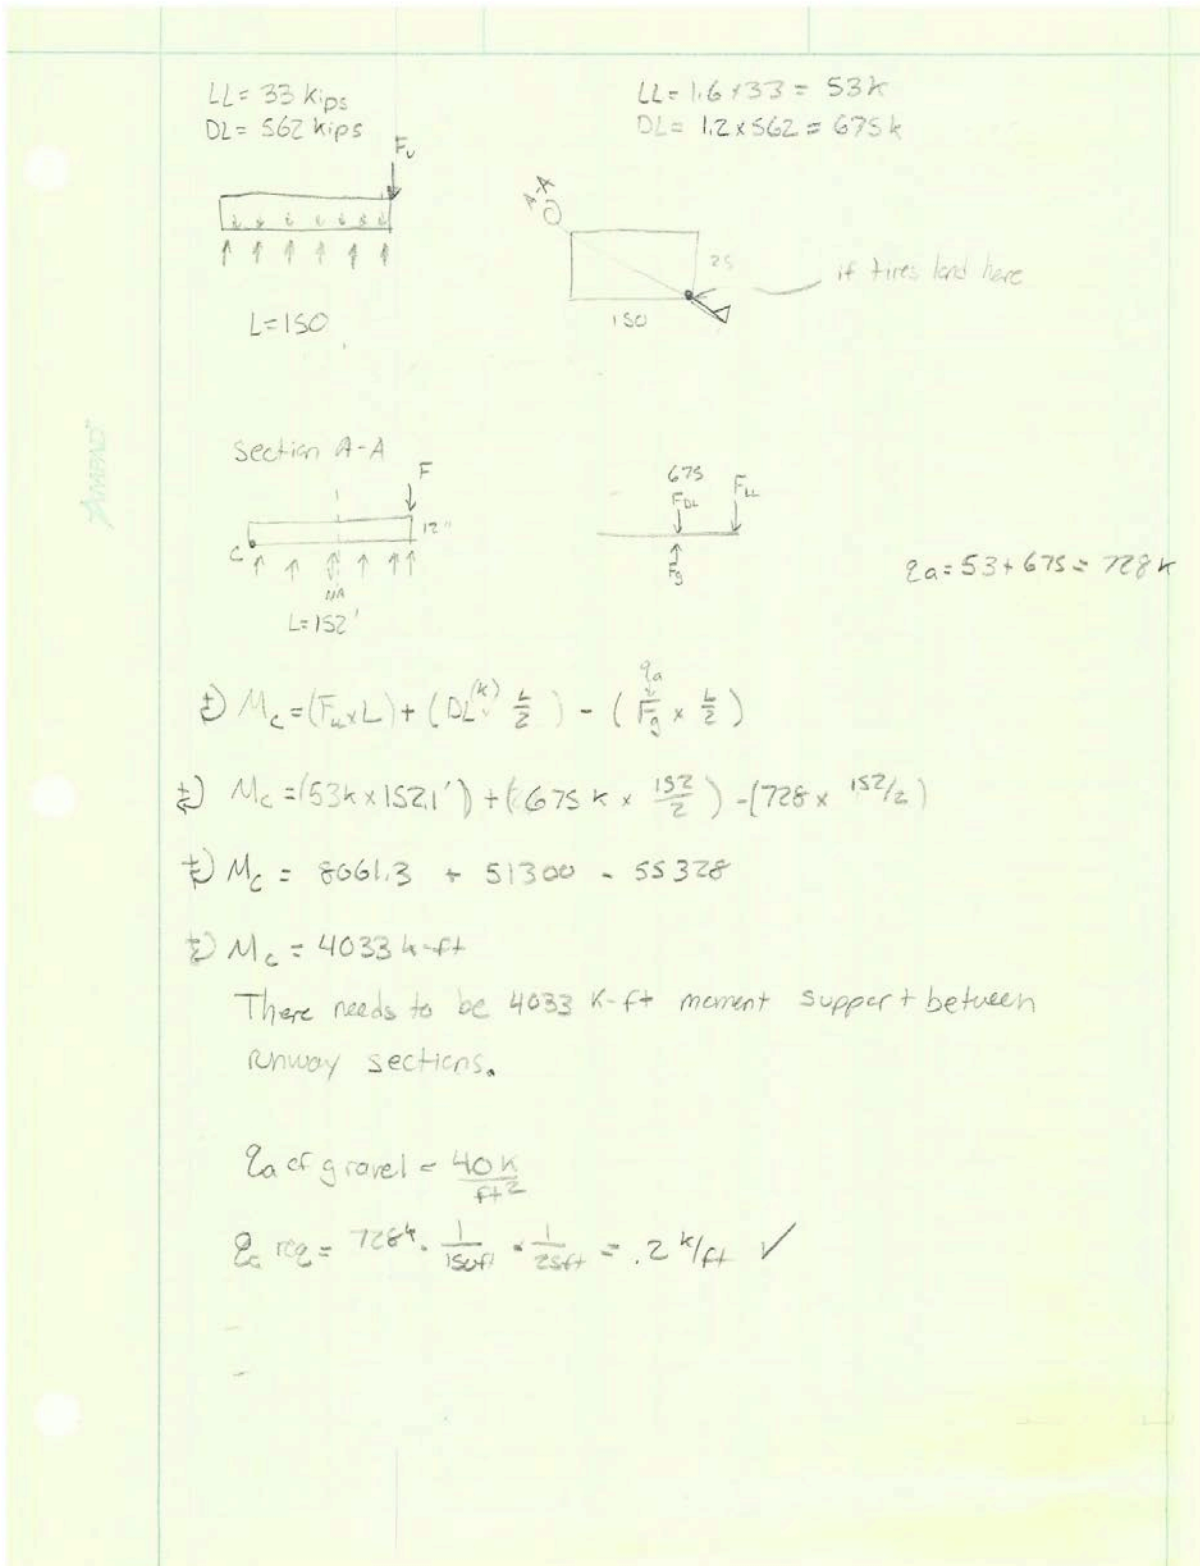 LL= 33 kips
DL= 562 kips
LL= 1.6×33 = 53k
DL= 1.2×562 = 675k
Fu
A-A
25
if tires land here
150
L=150
AMPAD
Section A-A
F
12"
C
NA
L=152'
675
FDL
FLL
Fg
qa = 53+675 = 728k
qa
Mc = (FLL×L) + (DL(k) L/2) - (Fg × L/2)
Mc = (53k×152.1') + (675k × 152/2) - (728 × 152/2)
Mc = 8061.3 + 51300 - 55328
Mc = 4033 k-ft
There needs to be 4033 k-ft moment support between
runway sections.
qa of gravel = 40k/ft²
qa req = 728k · 1/150ft · 1/25ft = .2 k/ft ✓